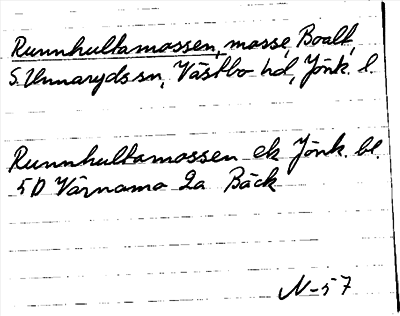 Runnhultamossen, mosse, Boalt,
S. Unnaryds sn, Västbo hd, Jönk. l.
Runnhultamossen ek Jönk. bl.
5D Värnamo 2a Bäck
N-57